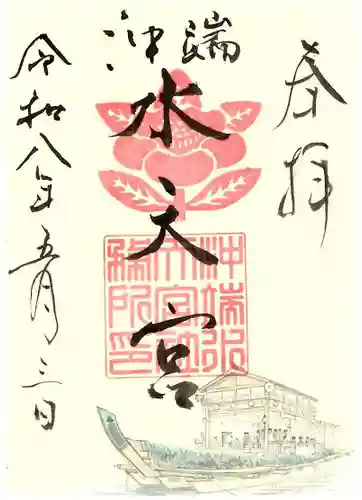 奉拝
沖端
水天宮
令和八年五月三日
沖端水
天宮社
務所印